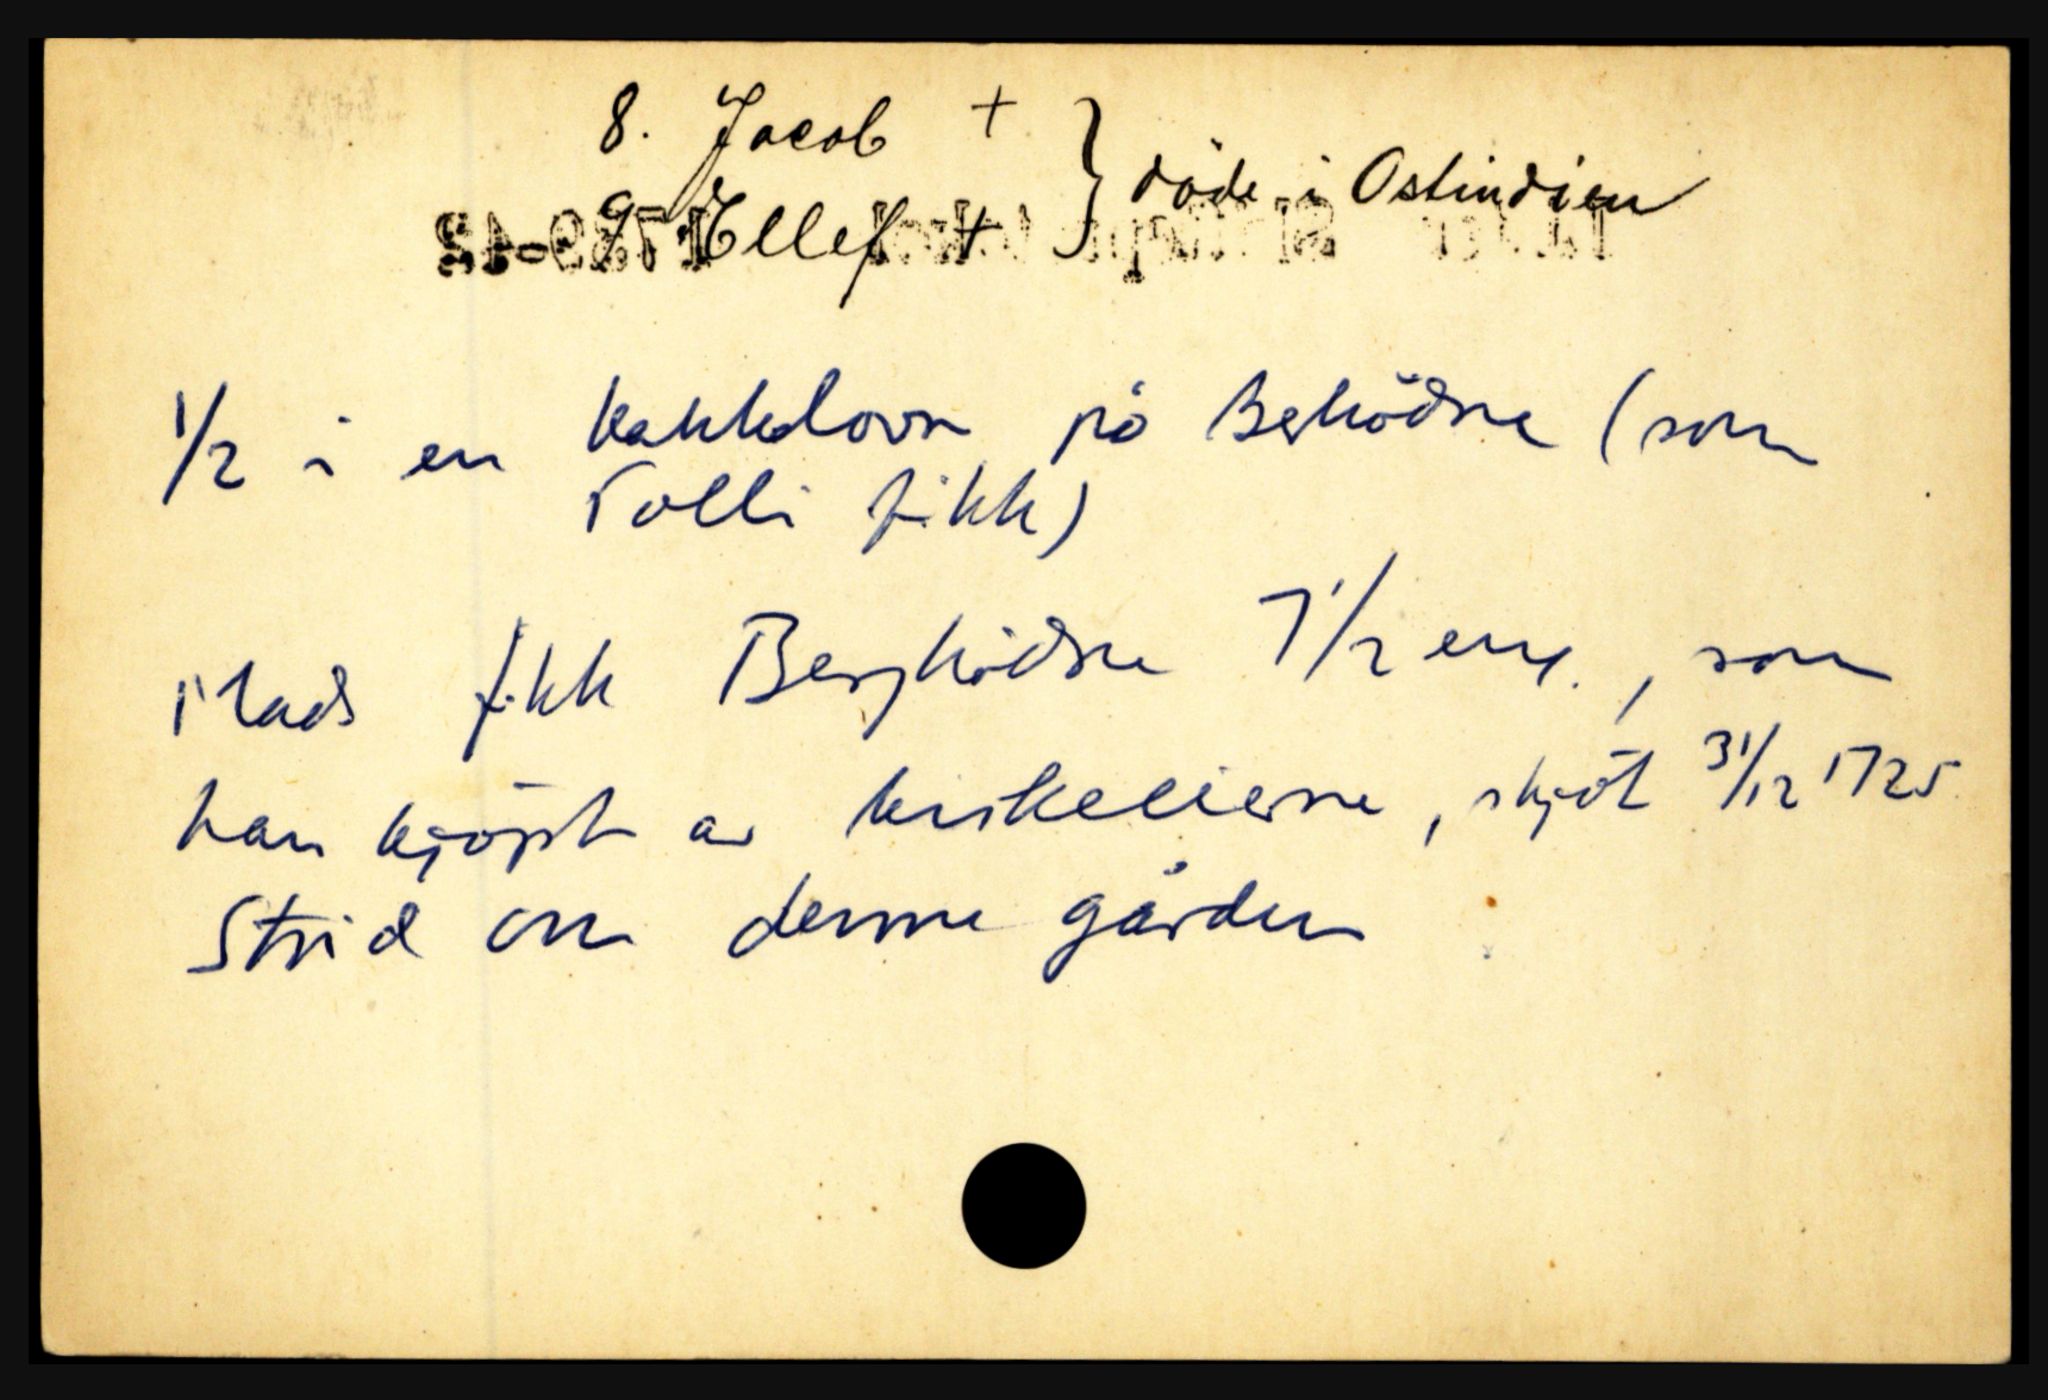 8. Jacob +
9. Ellef +
} döde i Ostindien
1/2 i en kakkelovn på Berhödne (som
Tolli fikk)
Mads fikk Berghödne 7 1/2 eng., som
han kjöpt av kirkeeierne, skjöt 31/12 1725
Strid om denne gården